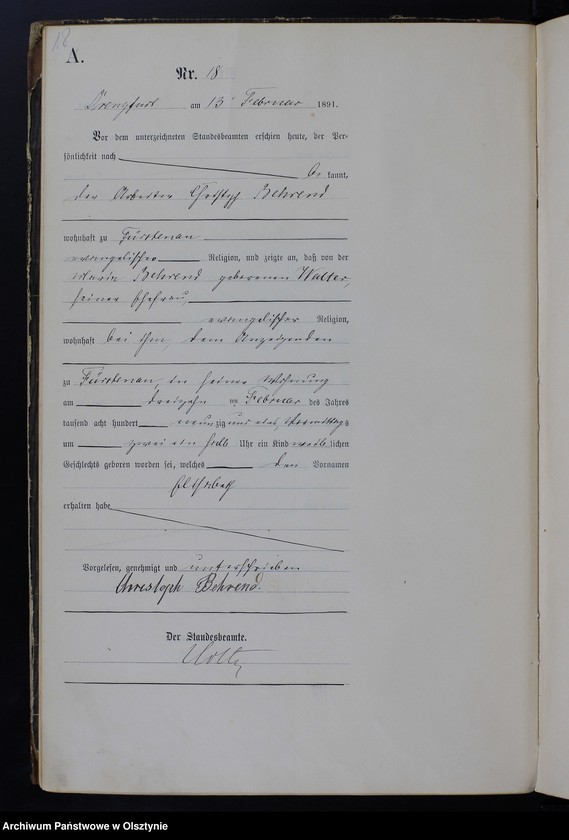 18
A.
Nr. 18
Drengfurt am 13 Februar 1891.
Vor dem unterzeichneten Standesbeamten erschien heute, der Per-
sönlichkeit nach
be kannt,
der Arbeiter Christoph Behrend
wohnhaft zu Fürstenau
evangelischer Religion, und zeigte an, daß von der
Maria Behrend geborenen Walter,
seiner Ehefrau,
evangelischer Religion,
wohnhaft bei ihm, dem Anzeigenden
zu Fürstenau, in seiner Wohnung
am dreizehn ten Februar des Jahres
tausend acht hundert neun zig und eins, Vormittags
um zwei ein halb Uhr ein Kind weib lichen
Geschlechts geboren worden sei, welches den Vornamen
Elisabeth
erhalten habe
Vorgelesen, genehmigt und unterschrieben
Christoph Behrend.
Der Standesbeamte.
Archiwum Państwowe w Olsztynie